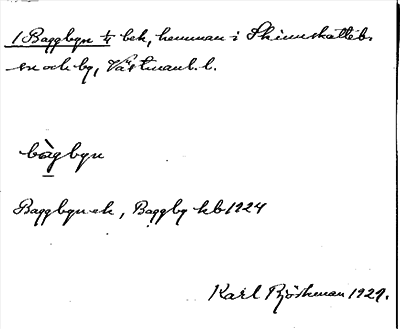 1 Baggbyn ¼ bek, hemman i Skinnskattebs
sn och by, Västmanl. l.
bàgbyn
Baggbyn ek, Baggby kb 1924
Karl Björkman 1929.